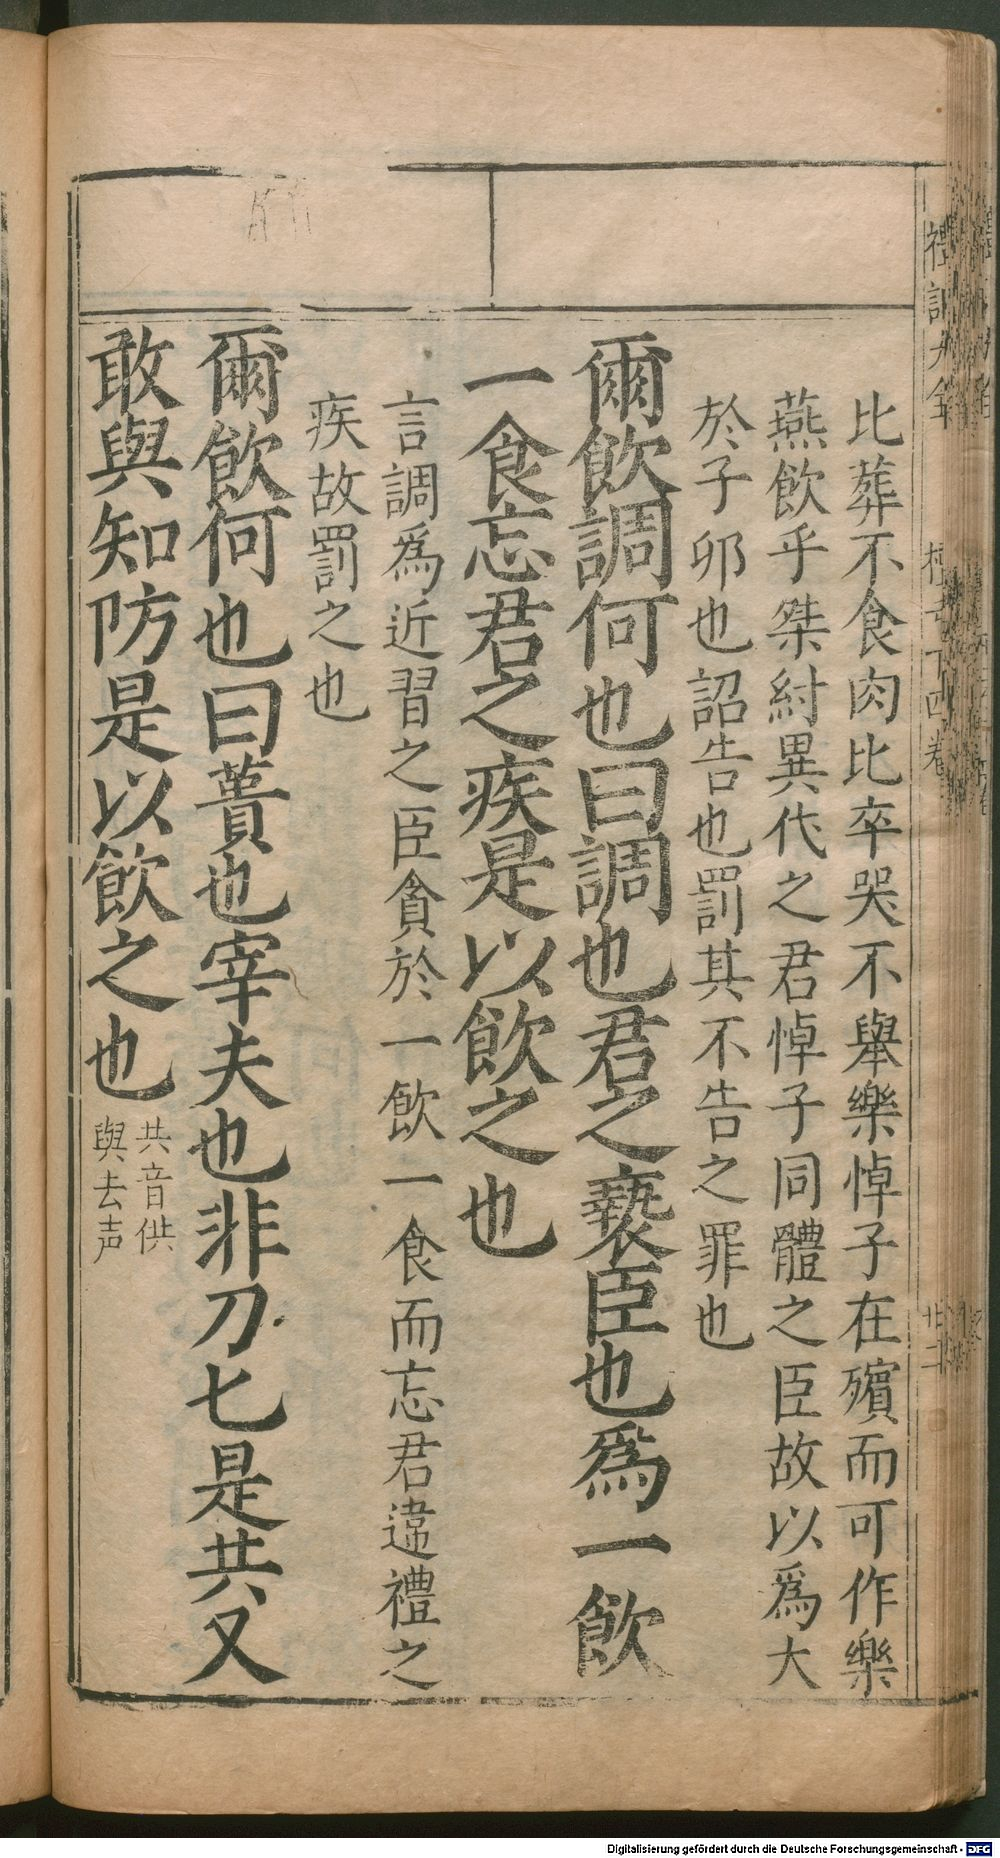 比葬不食肉比卒哭不舉樂悼子在殯而可作樂
燕飲乎桀紂異代之君悼子同體之臣故以爲大
於子卯也詔告也罰其不告之罪也
爾飲調何也曰調也君之褻臣也爲一飲
一食忘君之疾是以飲之也
言調爲近習之臣貪於一飲一食而忘君違禮之
疾故罰之也
爾飲何也曰蕢也宰夫也非刀七是共又
敢與知防是以飲之也
共音供
與去声
Digitalisierung gefördert durch die Deutsche Forschungsgemeinschaft - DFG